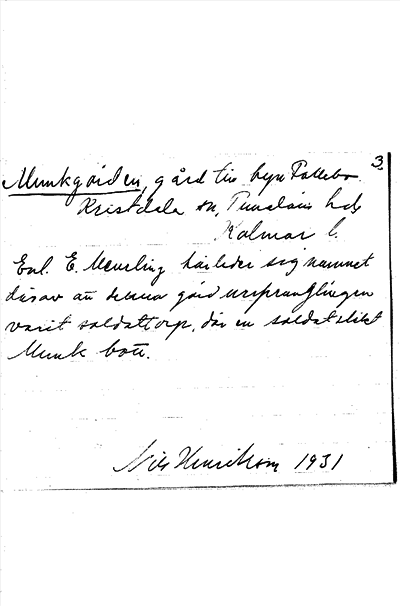 3
Munkgården, gård till byn Fallebo
Kristdala sn, Tunaläns hd,
Kalmar l.
Enl. E. Meurling härleder sig namnet
därav att denna gård ursprungligen
varit soldattorp, där en soldat slikt
Munk bott.
Nils Henriksson 1931